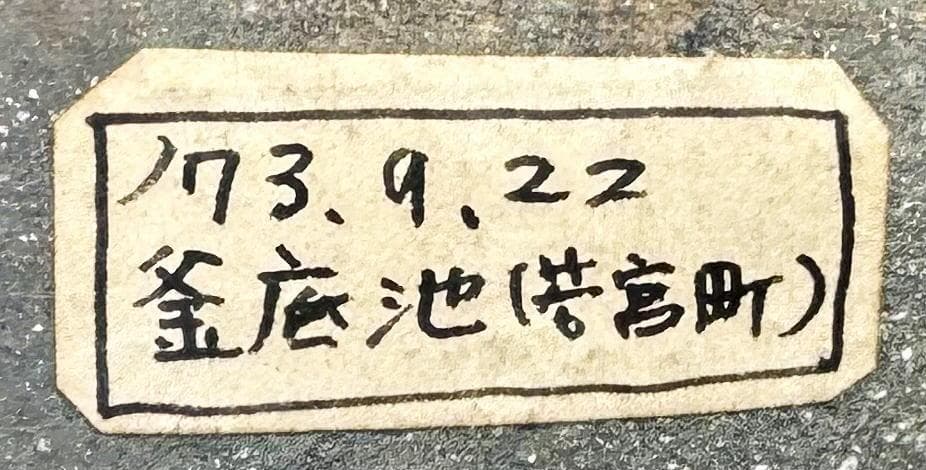 '73.9.22
釜底池(若宮町)